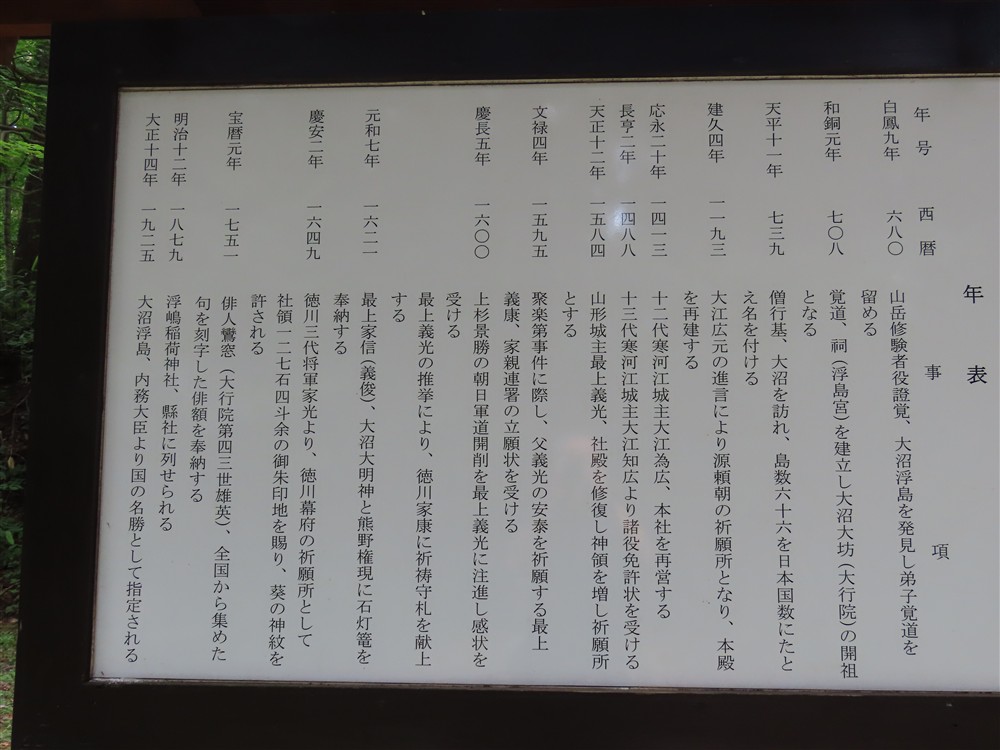 年表
年号　西暦　事項
白鳳九年　六八〇　山岳修験者役證覚、大沼浮島を発見し弟子覚道を
留める
和銅元年　七〇八　覚道、祠（浮島宮）を建立し大沼大坊（大行院）の開祖
となる
天平十一年　七三九　僧行基、大沼を訪れ、島数六十六を日本国数にたと
え名を付ける
建久四年　一一九三　大江広元の進言により源頼朝の祈願所となり、本殿
を再建する
応永二十年　一四一三　十二代寒河江城主大江為広、本社を再営する
長亨二年　一四八八　十三代寒河江城主大江知広より諸役免許状を受ける
天正十二年　一五八四　山形城主最上義光、社殿を修復し神領を増し祈願所
とする
文禄四年　一五九五　聚楽第事件に際し、父義光の安泰を祈願する最上
義康、家親連署の立願状を受ける
慶長五年　一六〇〇　上杉景勝の朝日軍道開削を最上義光に注進し感状を
受ける
最上義光の推挙により、徳川家康に祈祷守札を献上
する
元和七年　一六二一　最上家信（義俊）、大沼大明神と熊野権現に石灯篭を
奉納する
慶安二年　一六四九　徳川三代将軍家光より、徳川幕府の祈願所として
社領一二七石四斗余の御朱印地を賜り、葵の神紋を
許される
宝暦元年　一七五一　俳人鷺窓（大行院第四三世雄英）、全国から集めた
句を刻字した俳額を奉納する
明治十二年　一八七九　浮嶋稲荷神社、縣社に列せられる
大正十四年　一九二五　大沼浮島、内務大臣より国の名勝として指定される